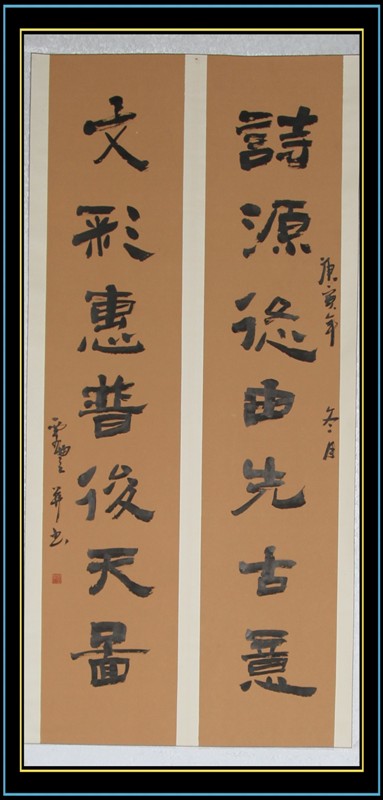 詩源從由先古意
庚寅年 冬月
文彩惠普後天圖
书